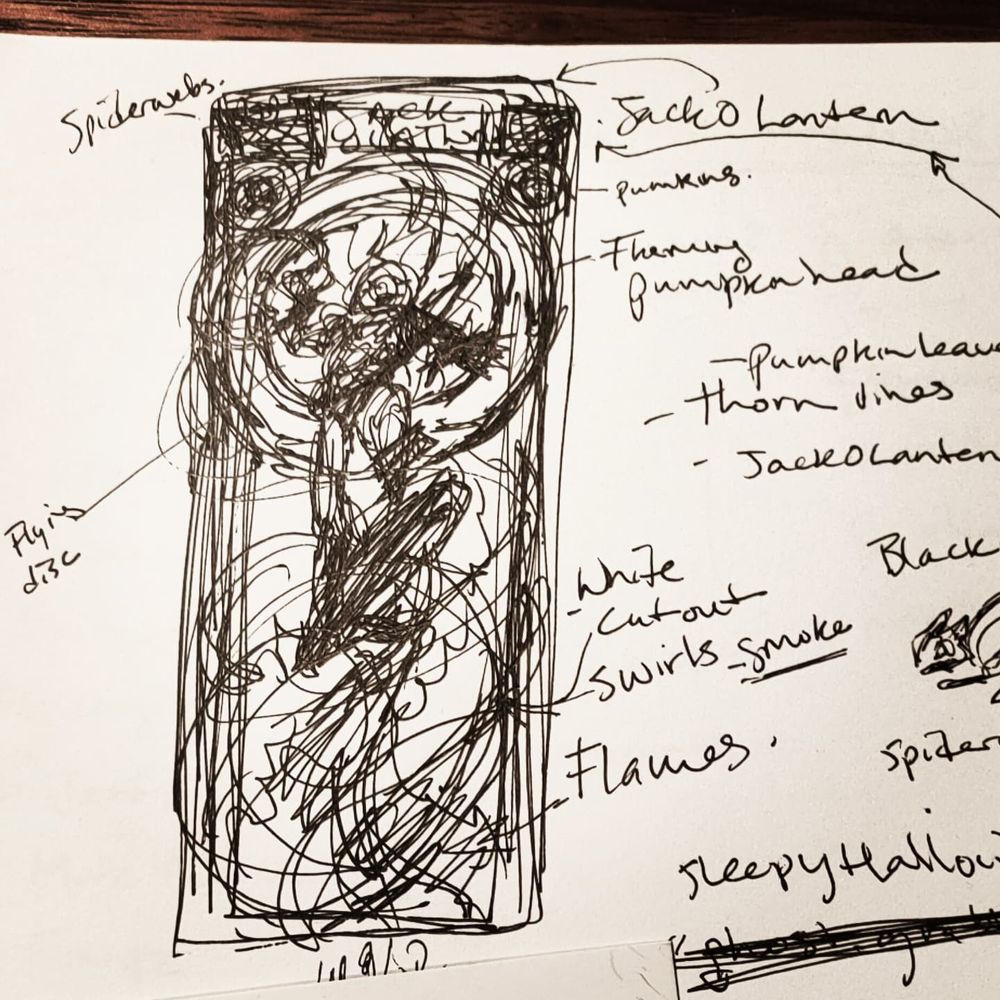 Spiderwebs.
Jack O Lantern
- pumkins.
- Flaming
pumpkin head
- pumpkin leave
- thorn vines
- Jack O Lantern
Flying
disc
Black
- White
cutout
- swirls - smoke
Flames.
spider
sleepy Hallow